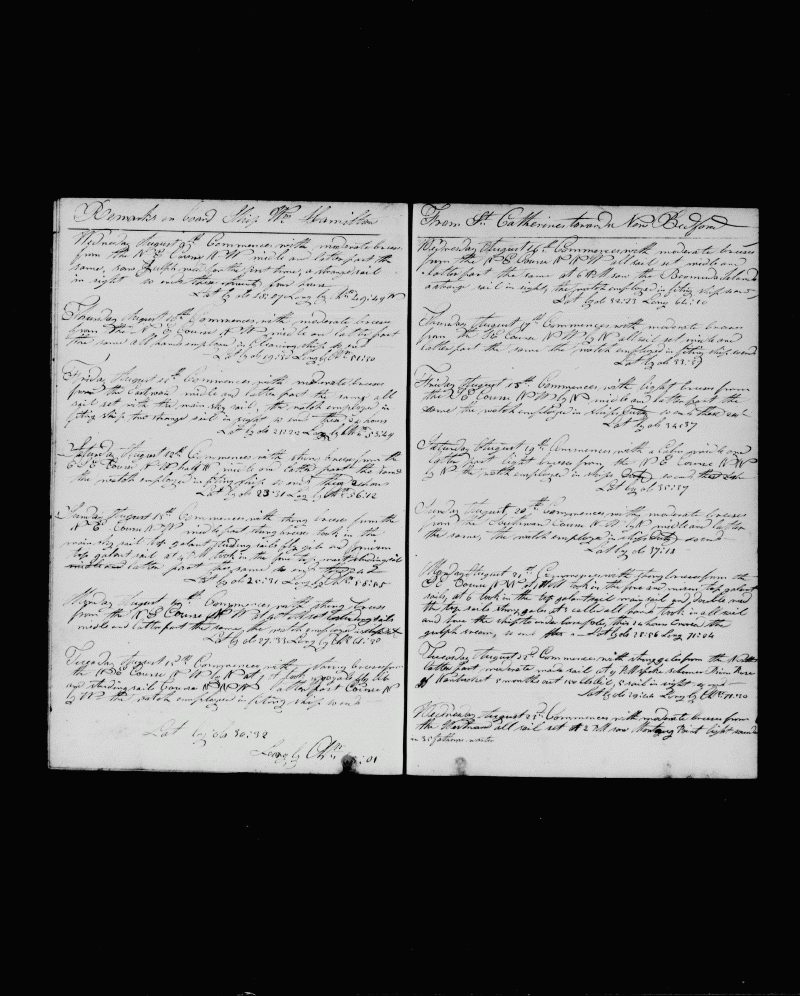 Remarks on board Ship Wm Hamilton
Wednesday August 9th Commences with moderate breeses
from the N E Course N W midle and latter part the
same, saw for the first time, a strange sail
in sight so ends
Lat by ob 18:07 Long by 49:49 W
Thursday August 10th Commences with moderate breeses
from the Course N W midle and latter part
the same all hands employed in cleaning ship so ends
Lat by ob 19:52 Long by Chr 51:50
Friday August 11th Commences with moderate breeses
from the Eastward midle and latter part the same all
sail set with the main sky sail, the watch employed in
fiting ship one strange sail in sight so ends these 24 hours
Lat by ob 21:22 Long by Chr 53:49
Saturday August 12th Commences with strong breeses from the
E S E Course N W half W midle and latter part the same
the watch employed in fiting ship so ends these 24 hours
Lat by ob 23:31 Long by Chr 56:12
Sunday August 13th Commences with strong breeses from the
N E Course N W midle part strong breese took in the
main sky sail top galant studing sails fly gib and mizzen
top galant sail at 4 A M took in the fore top mast studing sail
and latter part the same so ends
Lat by ob 25:31 Long by Chr 58:05
Monday August 14th Commences with strong breeses
from the N E Course N W
midle and latter part the same, the watch employed
Lat by ob 27:33 Long by Chr 61:30
Tuesday August 15th Commences with strong breeses from
the N E Course N W by N at
and studing sails Course N N W latter part Course N
by W the watch employed in fiting ship so ends
Lat by ob 30:32
Long by Chr :01
From St Catherines towards New Bedford
Wednesday August 16th Commences with moderate breeses
from the N E Course N N W all sail set midle and
latter part the same at 6 A M saw the Bermuda Island
a strange sail in sight, the watch employed in fiting ship so ends
Lat by ob 32:23 Long 64:10
Thursday August 17th Commences with moderate breeses
from the S E Course N W by N all sail set midle and
latter part the same the watch employed in fiting ship so ends
Lat by ob 33:57
Friday August 18th Commences with light breeses from
the S E Course N W by N midle and latter part the
same the watch employed in ships duty so ends these 24
Lat by ob 34:37
Saturday August 19th Commences with a calm midle and
latter part light breeses from the N E Course N W
by N the watch employed in ships duty so ends
Lat by ob 35:39
Sunday August 20th Commences with moderate breeses
from the Southward Course N W by N midle and latter
the same, the watch employed in ships duty so ends
Lat by ob 37:18
Monday August 21st Commences with strong breeses from the
S E Course N W at took in the fore and mizzen top galant
sails, at 6 took in the top galant sail main sail and double reef
the top sails strong gales at called all hands took in all sail
and hove the ship to under bare poles, this 24 hours crossed the
gulph stream, so ends Lat by ob 38:56 Long 71:04
Tuesday August 22d Commences with strong gales from the
latter part moderate made sail at 9 A M spoke Schooner Prim Rose
of Nantucket 8 months out 150 bbls oil, 5 sail in sight so ends
Lat by ob 39:44 Long by Chr 71:20
Wednesday August 23d Commences with moderate breese from
the Northward all sail set at 2 A M saw Montaug Point light
in 30 fathoms water